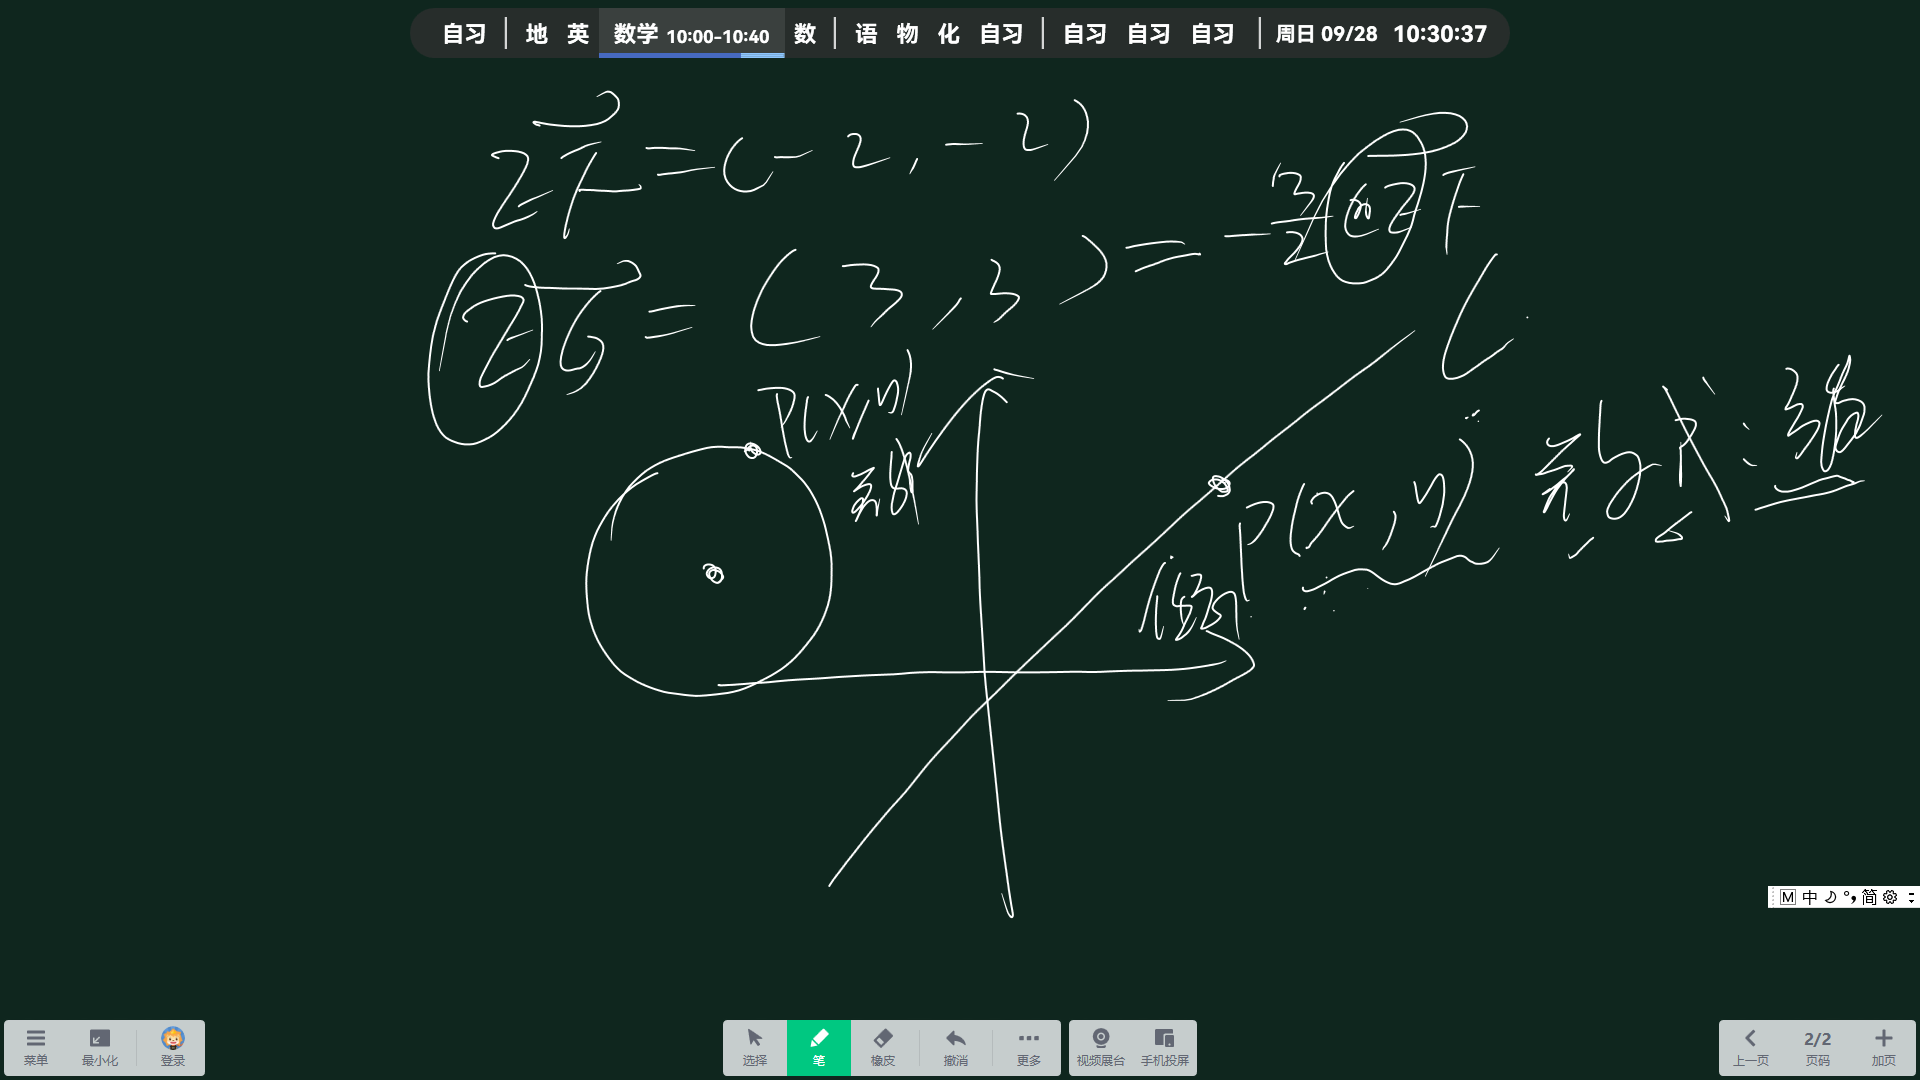 自习 | 地 英 数学 10:00-10:40 数 | 语 物 化 自习 | 自习 自习 自习 | 周日 09/28 10:30:37
EF=(-2,-2)
EG=(3,3)=-3/2 EF
P(x,y)
P(x,y)
M 中 简
菜单 最小化 登录 选择 笔 橡皮 撤消 更多 视频展台 手机投屏 上一页 2/2 页码 加页